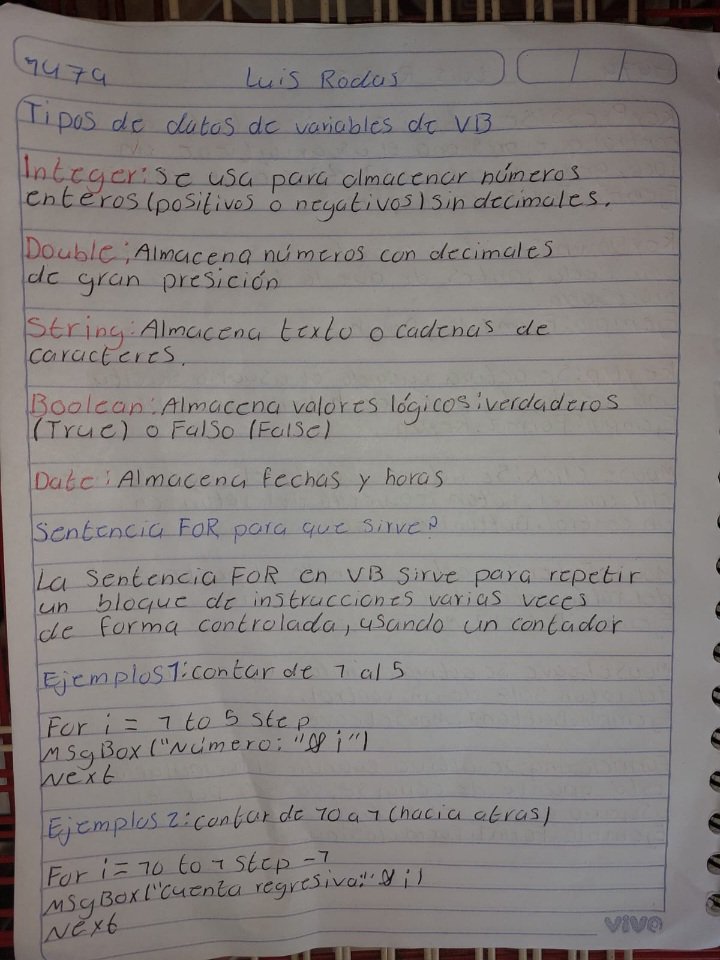 1474 Luis Rodas
Tipos de datos de variables de VB
Integer: se usa para almacenar números
enteros (positivos o negativos) sin decimales.
Double; Almacena números con decimales
de gran presición
String: Almacena texto o cadenas de
caracteres.
Boolean: Almacena valores lógicos: verdaderos
(True) o Falso (False)
Date: Almacena fechas y horas
Sentencia FOR para que sirve?
La sentencia FOR en VB sirve para repetir
un bloque de instrucciones varias veces
de forma controlada, usando un contador
Ejemplos 1: contar de 1 al 5
For i = 1 to 5 step
MsgBox ("Número: "& i")
Next
Ejemplos 2: contar de 10 a 1 (hacia atras)
For i = 10 to 1 step -1
MsgBox ("cuenta regresiva:" & i)
Next
vivo